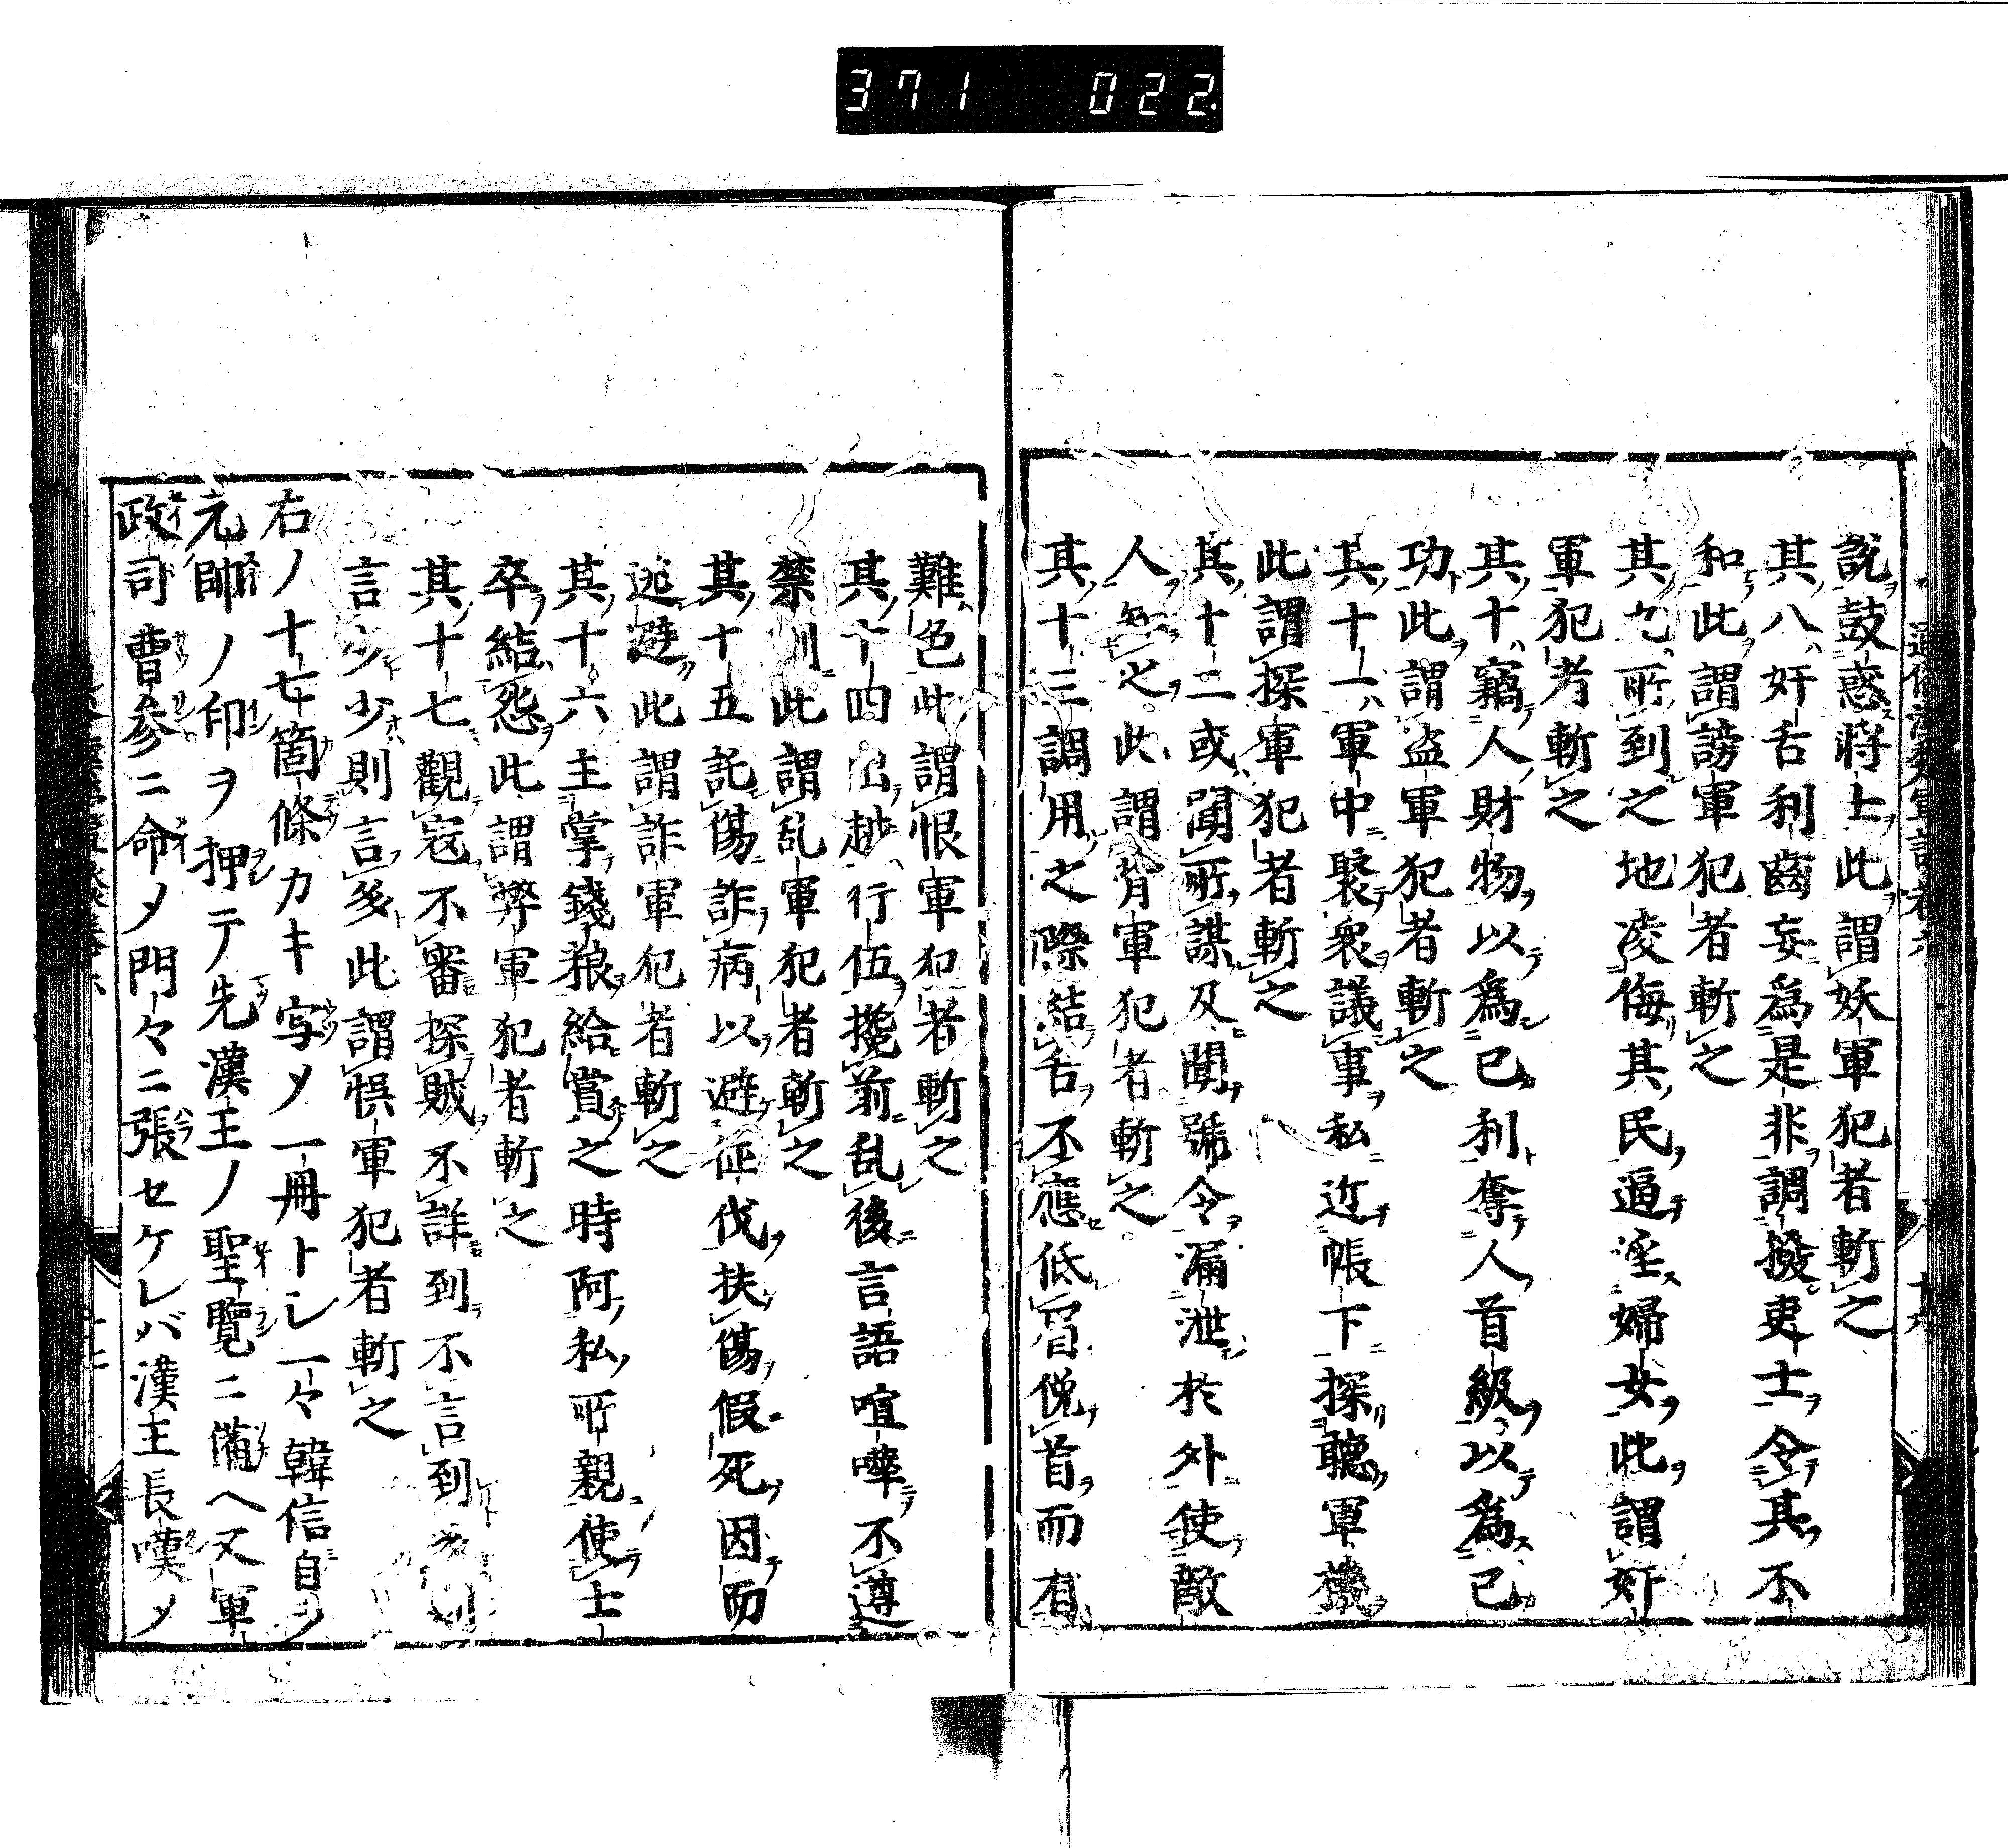 371 022
説鼓惑将士此謂妖軍犯者斬之
其八奸舌利齒妄為是非調撥吏士令其不
和此謂謗軍犯者斬之
其九所到之地凌侮其民逼淫婦女此謂奸
軍犯者斬之
其十竊人財物以為己利奪人首級以為己
功此謂盗軍犯者斬之
其十一軍中聚衆議事私近帳下探聴軍機
此謂探軍犯者斬之
其十二或聞所謀及聞號令漏泄於外使敵
人知之此謂背軍犯者斬之
其十三調用之際結舌不應低眉俛首而有
難色此謂恨軍犯者斬之
其十四出越行伍攙前乱後言語喧嘩不遵
禁訓此謂乱軍犯者斬之
其十五託傷詐病以避征伐扶傷假死因而
逃避此謂詐軍犯者斬之
其十六主掌錢粮給賞之時阿私所親使士
卒結怨此謂弊軍犯者斬之
其十七觀寇不審探賊不詳到不言到多則
言少少則言多此謂悞軍犯者斬之
右ノ十七箇條カキ写メ一冊トシ一々韓信自ラ
元帥ノ印ヲ押テ先漢王ノ聖覽ニ備ヘ又軍
政司曹参ニ命メ門々ニ張セケレバ漢王長嘆メ